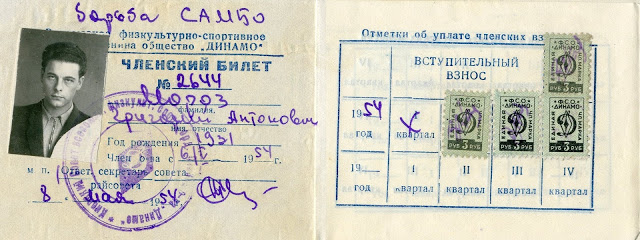 борьба САМБО
физкультурно-спортивное
общество „ДИНАМО"
ЧЛЕНСКИЙ БИЛЕТ
№ 2644
Мороз
фамилия
Григорий Антонович
имя, отчество
Год рождения 1931
Член о-ва с 6/V 1954 г.
м п. Ответ. секретарь совета
райсовета
8 мая 1954
Отметки об уплате членских взн
ВСТУПИТЕЛЬНЫЙ
ВЗНОС
1954
год
I
квартал
ФСО
ДИНАМО
ЕДИНАЯ
ЧЛ.МАРКА
РУБ 3 РУБ
ФСО
ДИНАМО
ЕДИНАЯ
ЧЛ.МАРКА
РУБ 3 РУБ
ФСО
ДИНАМО
ЕДИНАЯ
ЧЛ.МАРКА
РУБ 3 РУБ
ФСО
ДИНАМО
ЕДИНАЯ
ЧЛ.МАРКА
РУБ 3 РУБ
19
год
I
квартал
II
квартал
III
квартал
IV
квартал